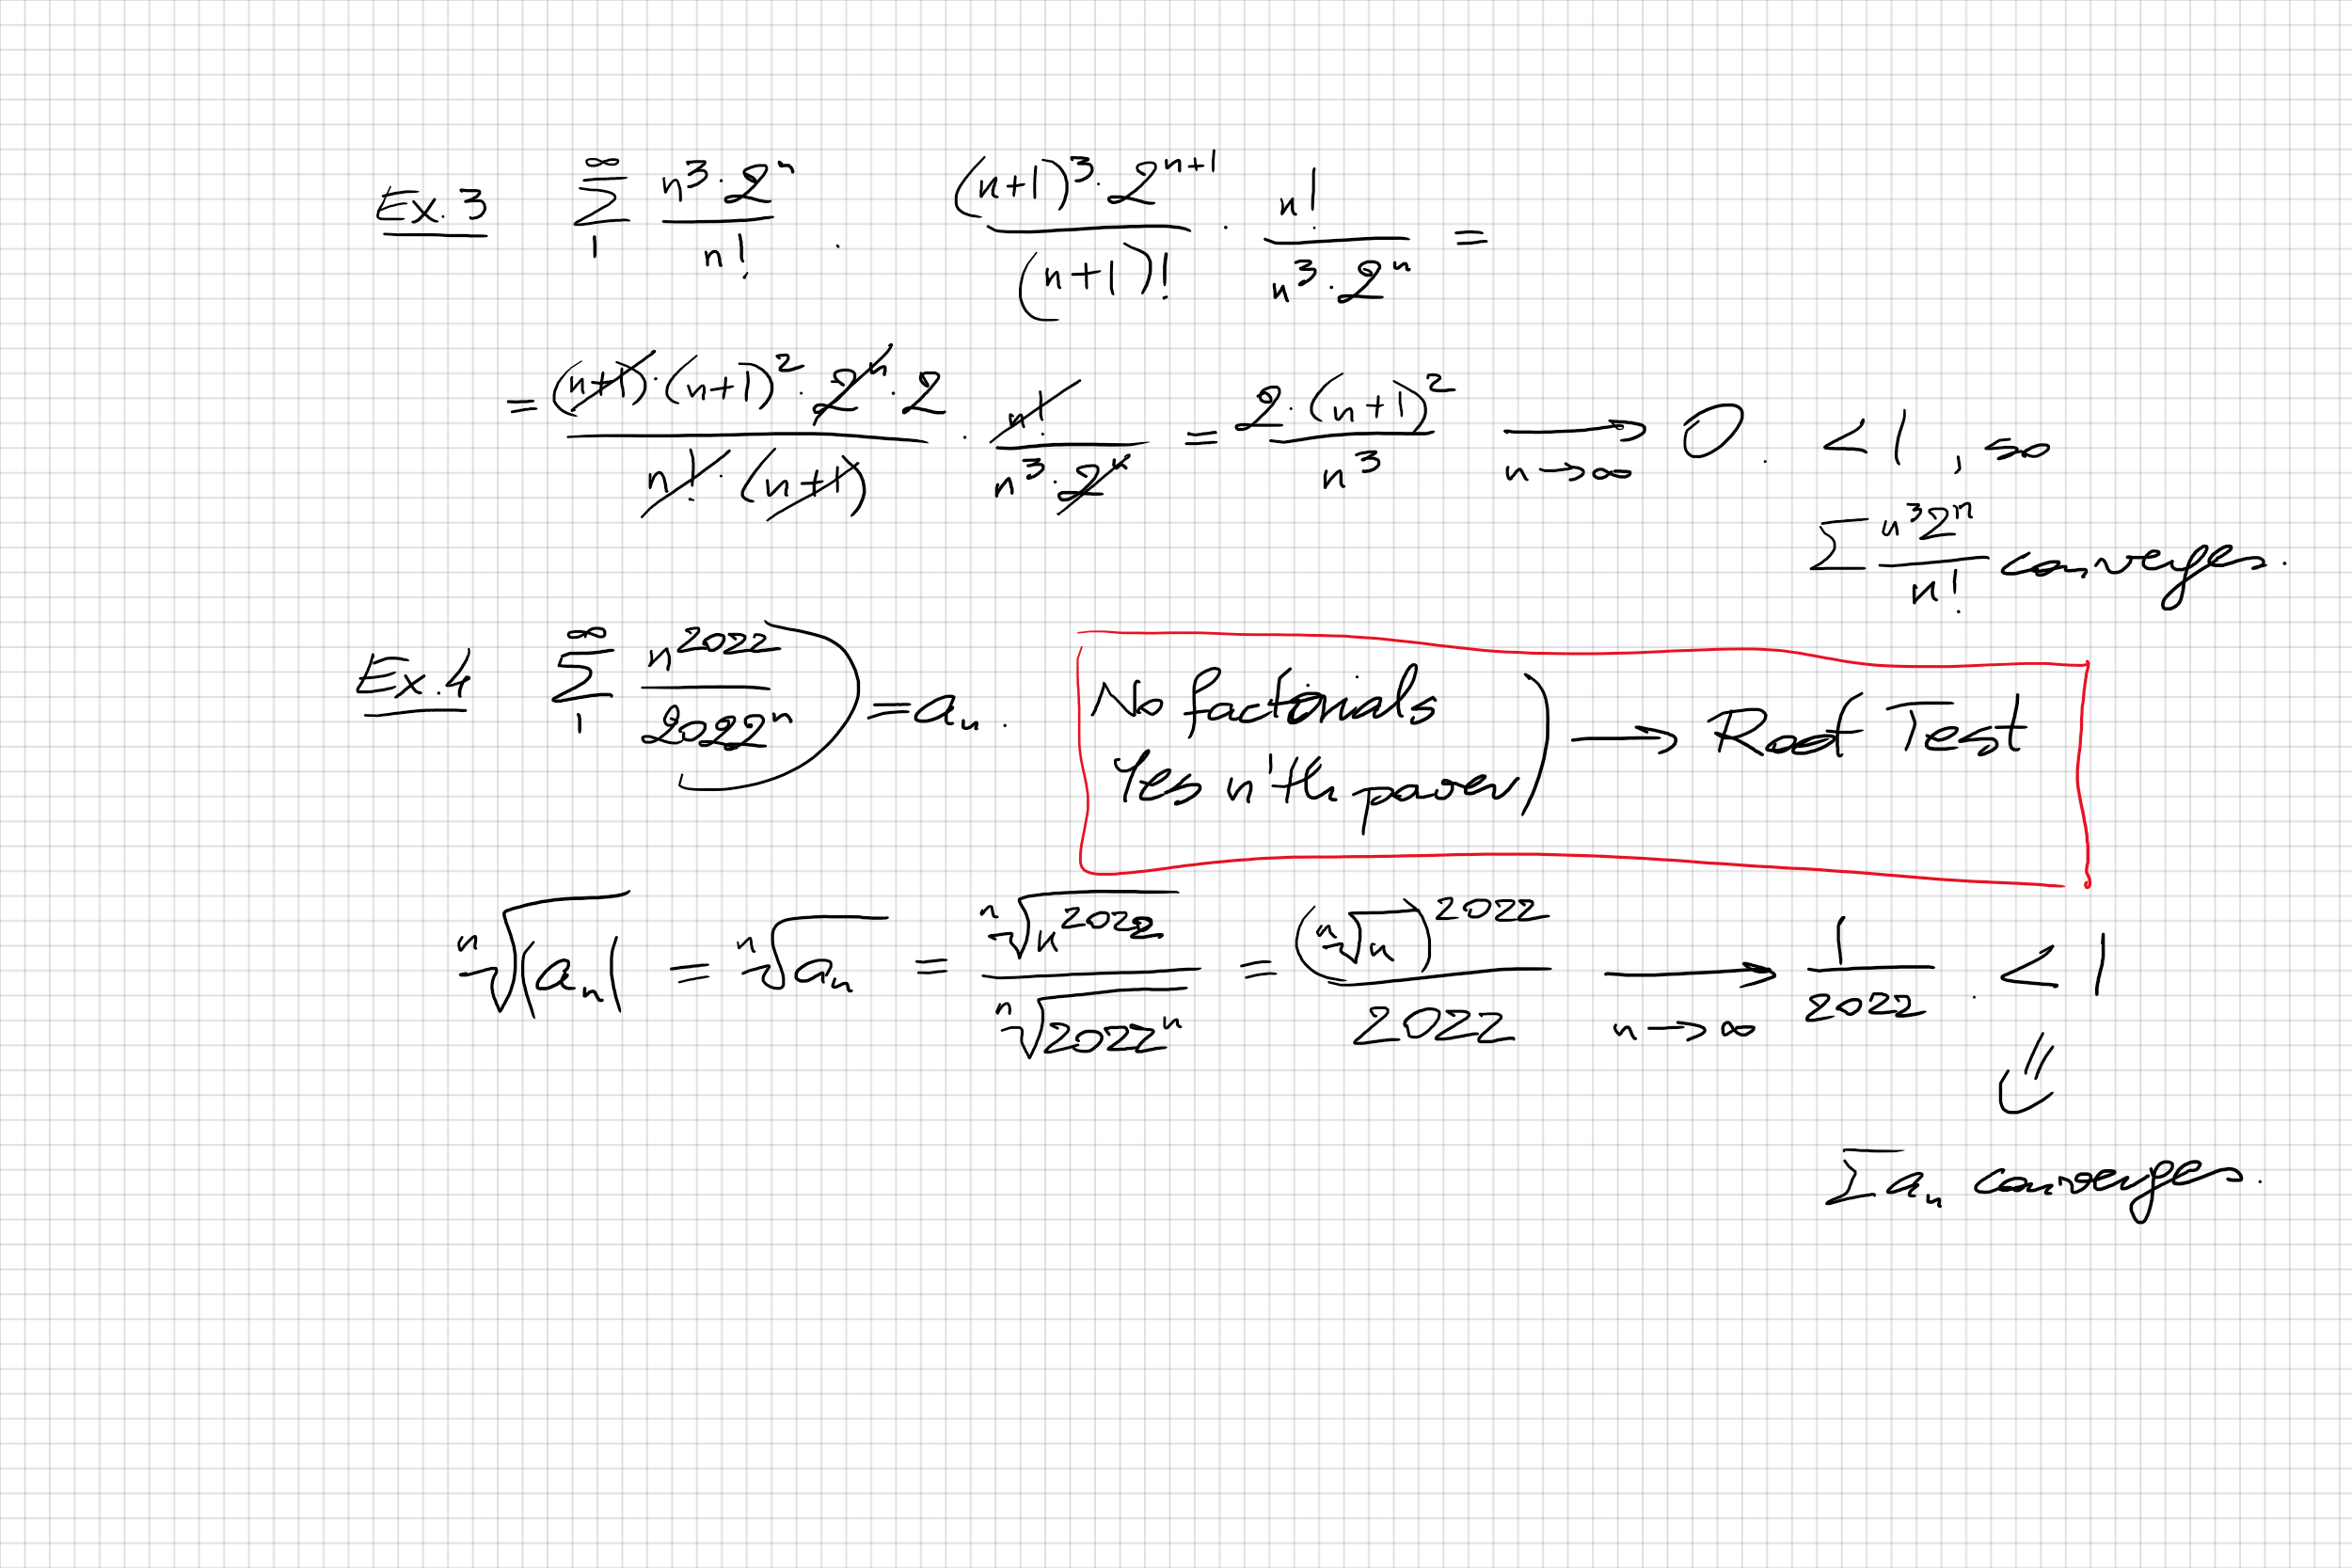 Ex. 3 ∞ Σ 1 n³·2ⁿ / n! . (n+1)³·2ⁿ⁺¹ / (n+1)! · n! / n³·2ⁿ =
= (n+1)·(n+1)²·2ⁿ·2 / n!·(n+1) · n! / n³·2ⁿ = 2·(n+1)² / n³ → n→∞ 0. < 1, so
Σ n³2ⁿ / n! converges.
Ex. 4 ∞ Σ 1 n²⁰²² / 2022ⁿ ) = aₙ.
No factorials
Yes n'th power ) → Root Test
ⁿ√|aₙ| = ⁿ√aₙ = ⁿ√n²⁰²² / ⁿ√2022ⁿ = (ⁿ√n)²⁰²² / 2022 → n→∞ 1 / 2022 . < 1
⇓
Σ aₙ converges.